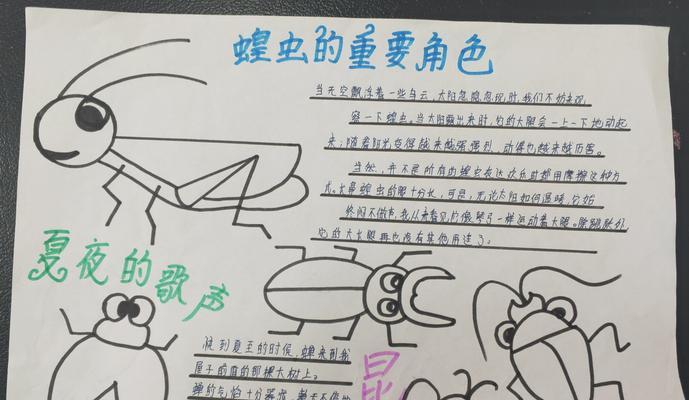 蝗虫的重要角色
当天空飘浮着一些乌云，太阳忽隐忽现时，我们不妨来观
察一下蝗虫。当太阳露出来时，它的大腿会一上一下地动起
来；随着阳光变得越来越强烈，动得也越来越厉害。
当然，并不是所有的蝗虫表达欢乐时都用摩擦这种方
式。大鼻蝗虫的腿十分长，可是，无论太阳如何温暖，它始
终闷不做声。我从来看见像提琴弓一样运动着大腿。除跳跃外，
它的大长腿再也没有其他用途了。
夏夜的歌声
快到夏至的时候，蝉来到我
屋子前面的那棵大树上。
蝉的气
昆